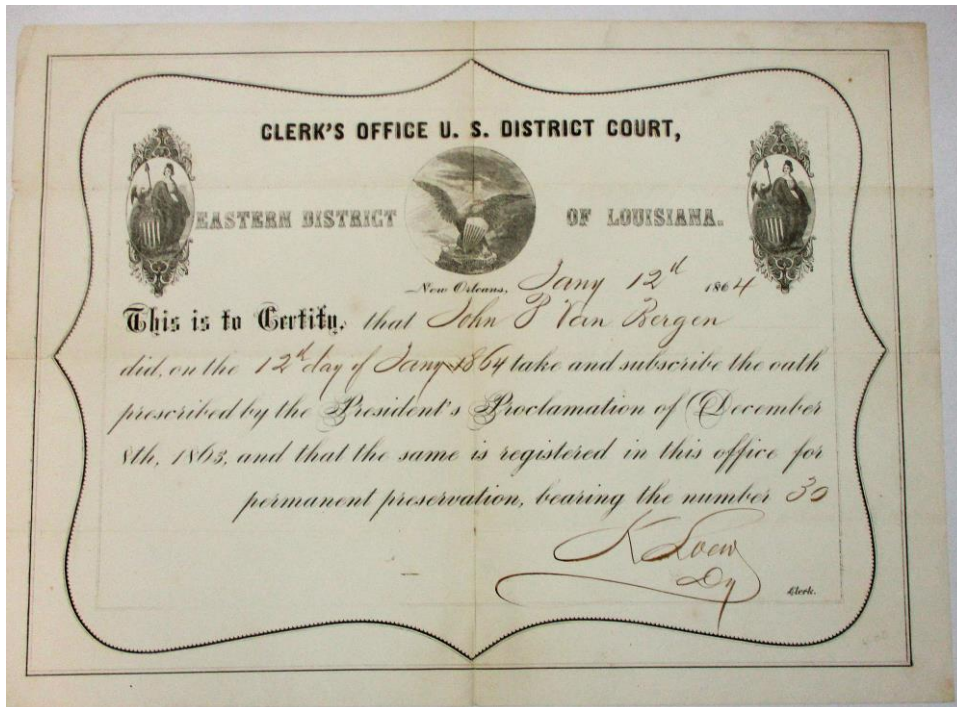 CLERK'S OFFICE U. S. DISTRICT COURT,
EASTERN DISTRICT OF LOUISIANA.
New Orleans, Jany 12th 1864
This is to Certify, that John P Van Bergen
did, on the 12th day of Jany 1864 take and subscribe the oath
prescribed by the President's Proclamation of December
8th, 1863, and that the same is registered in this office for
permanent preservation, bearing the number 30
K Loew
Dy Clerk.